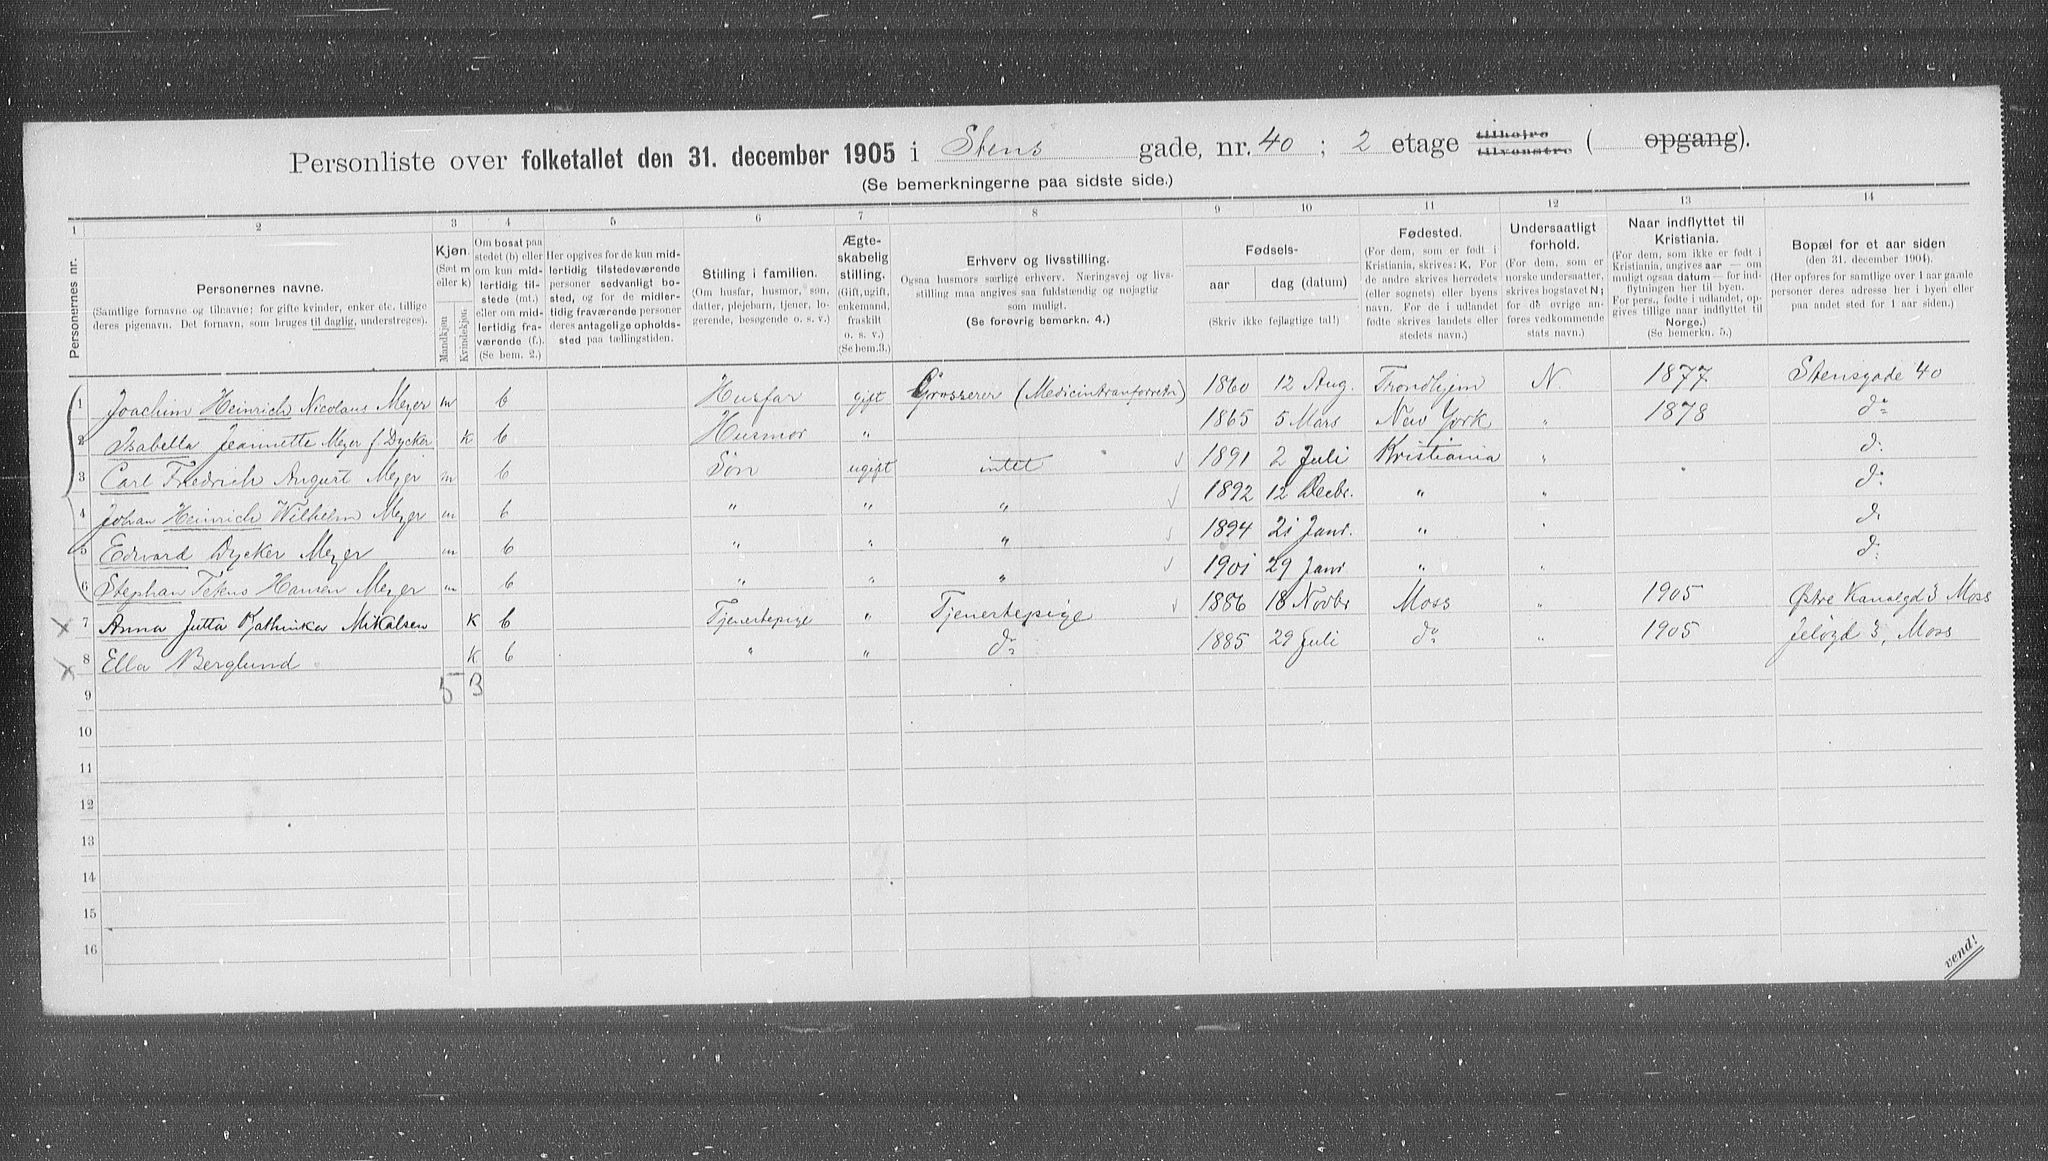 Personliste over folketallet den 31. december 1905 i Stens gade, nr. 40 ; 2 etage tilhøjre tilvenstre ( opgang).
(Se bemerkningerne paa sidste side.)
1 2 3 4 5 6 7 8 9 10 11 12 13 14
Personernes nr.
Personernes navne.
(Samtlige fornavne og tilnavne; for gifte kvinder, enker etc. tillige deres pigenavn. Det fornavn, som bruges til daglig, understreges).
Kjøn. (Sæt m eller k) Mandkjøn. Kvindekjøn.
Om bosat paa stedet (b) eller om kun midlertidig tilstede (mt.) eller om midlertidig fraværende (f.). (Se bem. 2.)
Her opgives for de kun midlertidig tilstedeværende personer sedvanligt bosted, og for de midlertidig fraværende personer deres antagelige opholdssted paa tællingstiden.
Stilling i familien.
(Om husfar, husmor, søn, datter, plejebarn, tjener, logerende, besøgende o. s. v.)
Ægteskabelig stilling.
(Gift, ugift, enkemand, fraskilt o. s. v.) (Se bem. 3.)
Erhverv og livsstilling.
Ogsaa husmors særlige erhverv. Næringsvej og livsstilling maa angives saa fuldstændig og nøjagtig som muligt.
(Se forøvrig bemerkn. 4.)
Fødsels-
aar dag (datum)
(Skriv ikke fejlagtige tal!)
Fødested.
(For dem, som er født i Kristiania, skrives: K. For de andre skrives herredets (eller sognets) eller byens navn. For de i udlandet fødte skrives landets eller stedets navn.)
Undersaatligt forhold.
(For dem, som er norske undersaatter, skrives bogstavet N; for de øvrige anføres vedkommende stats navn.)
Naar indflyttet til Kristiania.
(For dem, som ikke er født i Kristiania, angives aar — om muligt ogsaa datum — for indflytningen her til byen. For pers., fødte i udlandet, opgives tillige naar indflyttet til Norge.)
(Se bemerkn. 5.)
Bopæl for et aar siden
(den 31. december 1904).
(Her opføres for samtlige over 1 aar gamle personer deres adresse her i byen eller paa andet sted for 1 aar siden.)
1 Joachim Heinrich Nicolaus Meyer m b Husfar gift Grosserer (Medicintranforretn) 1860 12 Aug. Trondhjem N. 1877 Stensgade 40
2 Isabella Jeannette Meyer f. Dycker k b Husmor " 1865 5 Mars New York " 1878 do
3 Carl Fredrich August Meyer m b Søn ugift intet 1891 2 Juli Kristiania " d:
4 Johan Heinrich Wilhelm Meyer m b " " " 1892 12 Decbr. " " d:
5 Edward Dycker Meyer m b " " " 1894 21 Janr. " " d:
6 Stephan Tetens Hansen Meyer m b " " " 1901 29 Janr " " d:
x 7 Anna Jutta Kathinka Mikalsen k b Tjenestepige " Tjenestepige 1886 18 Novbr Moss " 1905 Østre Kanalgd 3 Moss
x 8 Ella Berglund k b " " do 1885 29 Juli do " 1905 Jeløgd 3, Moss
5 3
9
10
11
12
13
14
15
16
vend!